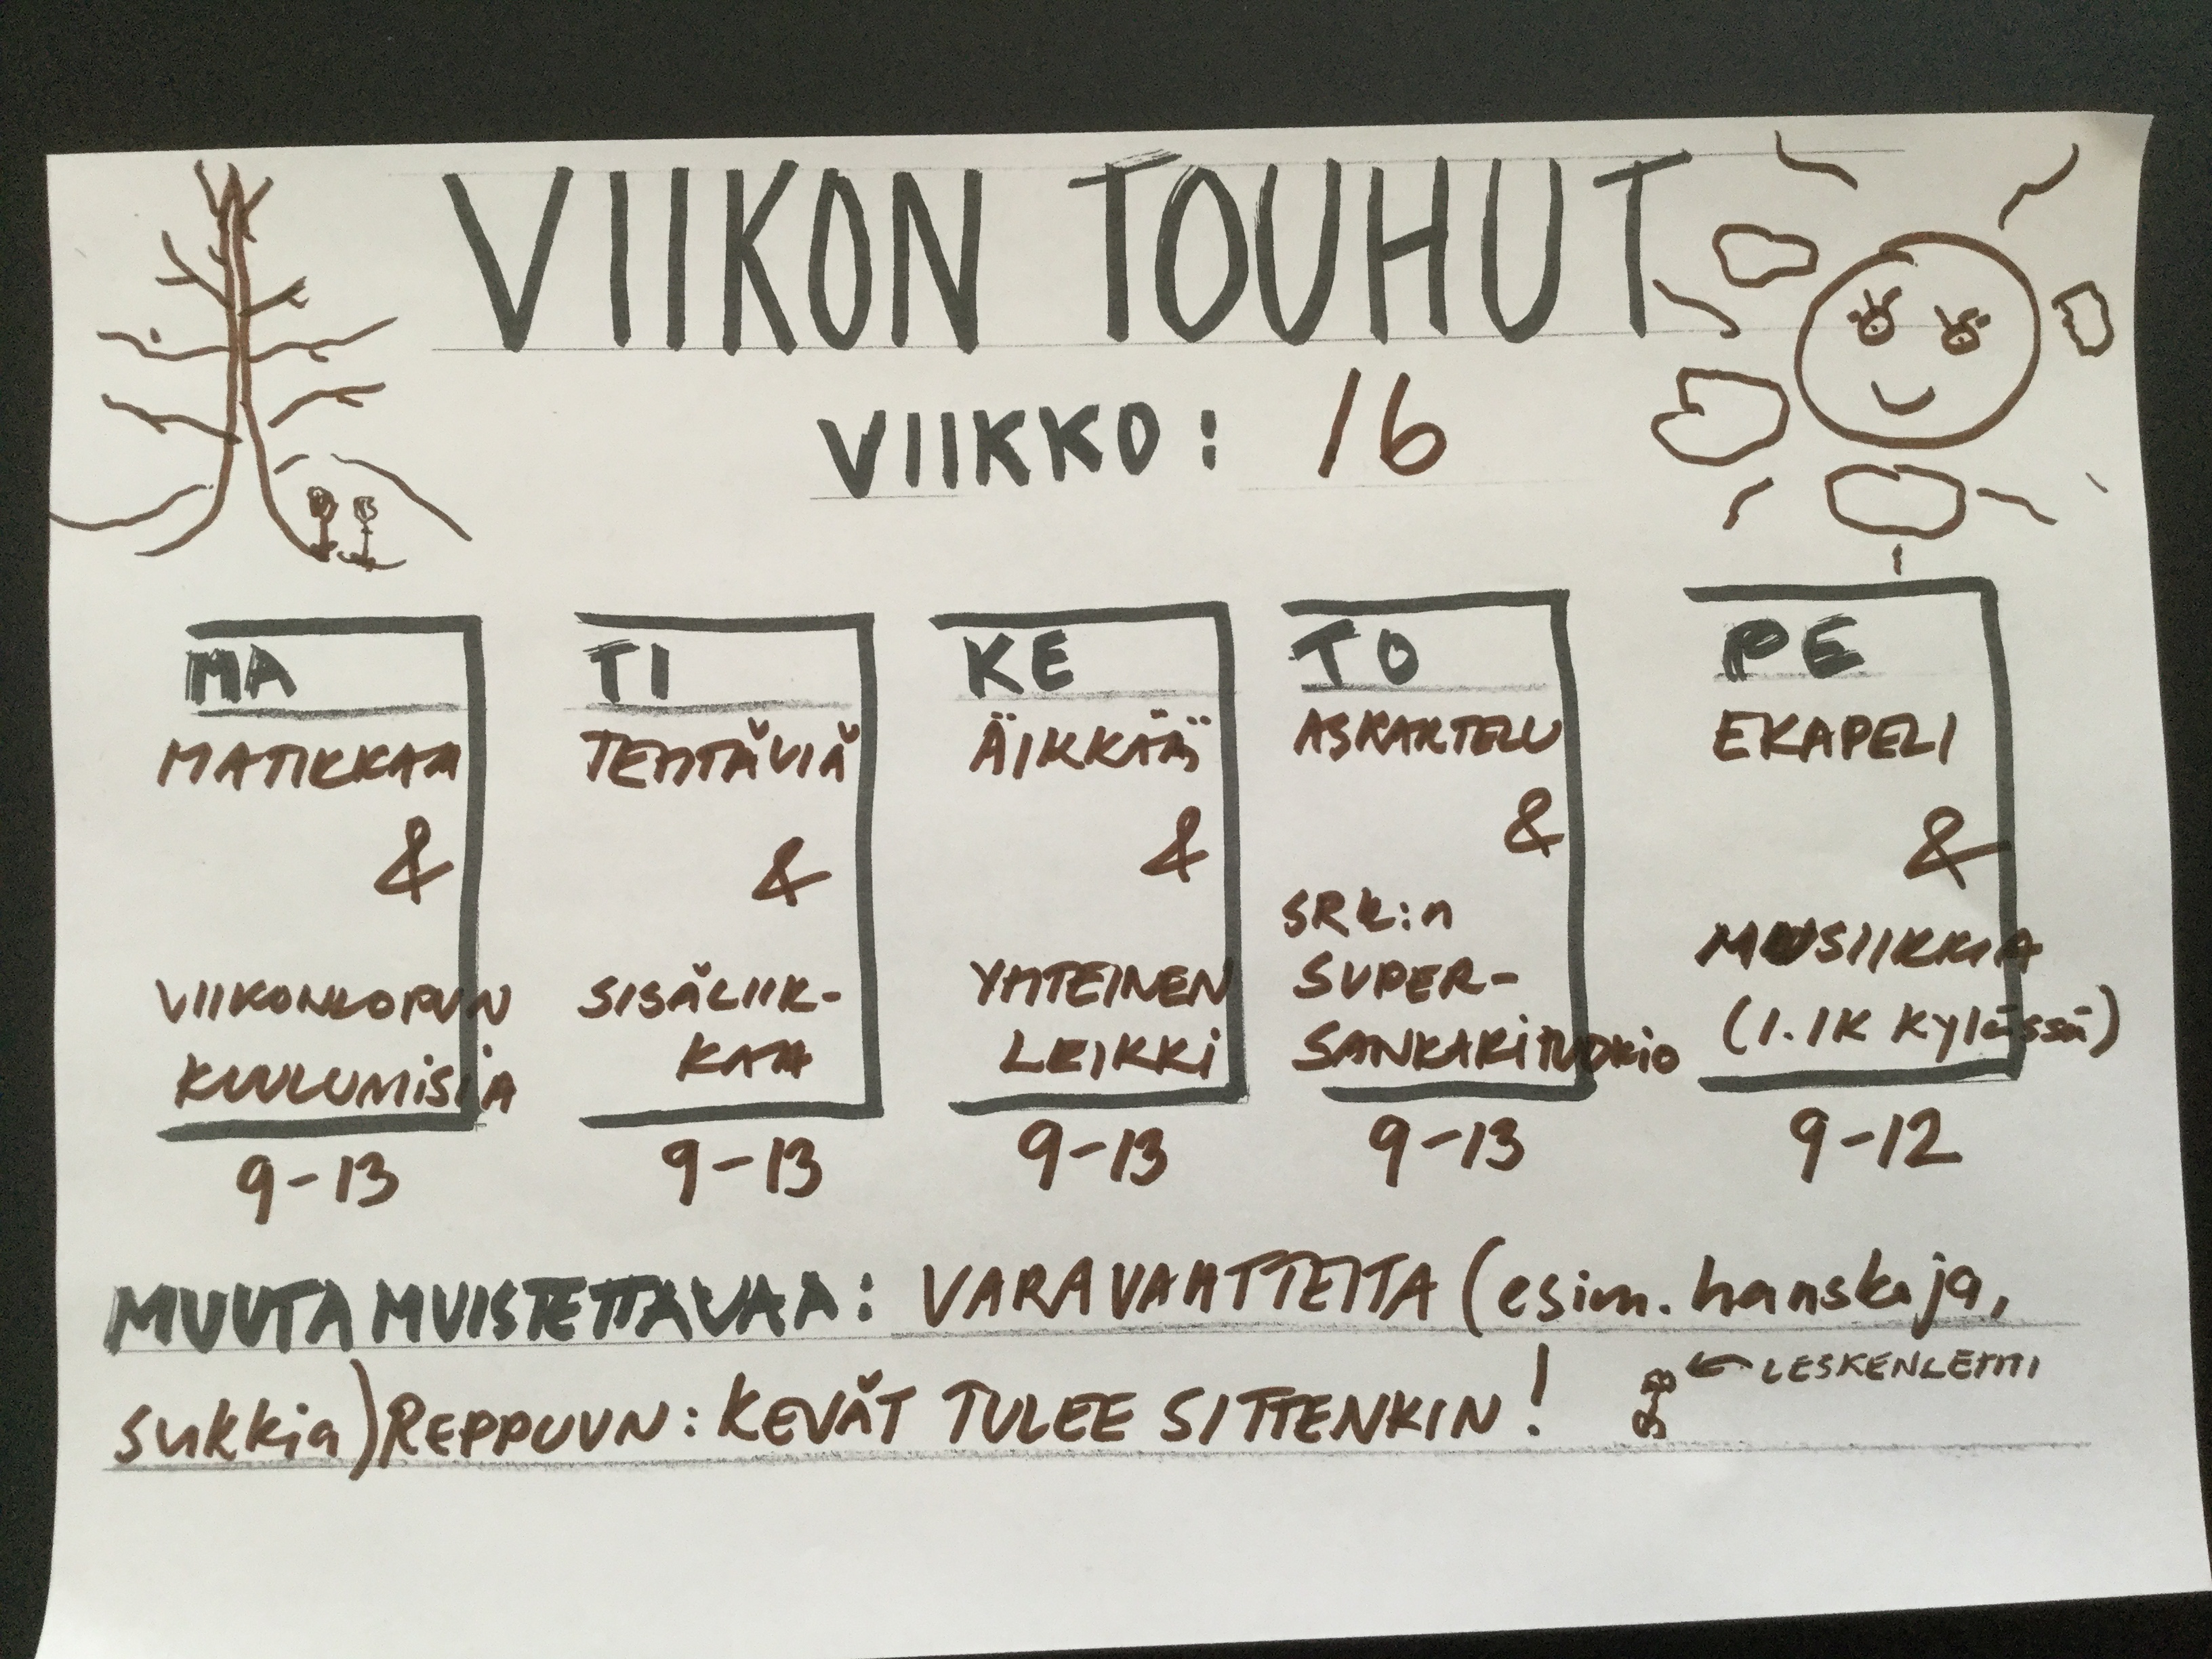 VIIKON TOUHUT
VIIKKO: 16
MA
MATIKKAA
&
VIIKONLOPUN
KUULUMISIA
9-13
TI
TEHTÄVIÄ
&
SISÄLIIK-
KAA
9-13
KE
ÄIKKÄÄ
&
YHTEINEN
LEIKKI
9-13
TO
ASKARTELU
&
SRK:n
SUPER-
SANKARITUOKIO
9-13
PE
EKAPELI
&
MUSIIKKIA
(1.lk kylässä)
9-12
MUUTA MUISTETTAVAA: VARAVAATTEITA (esim. hanskoja,
sukkia) REPPUUN: KEVÄT TULEE SITTENKIN!
← LESKENLEHTI